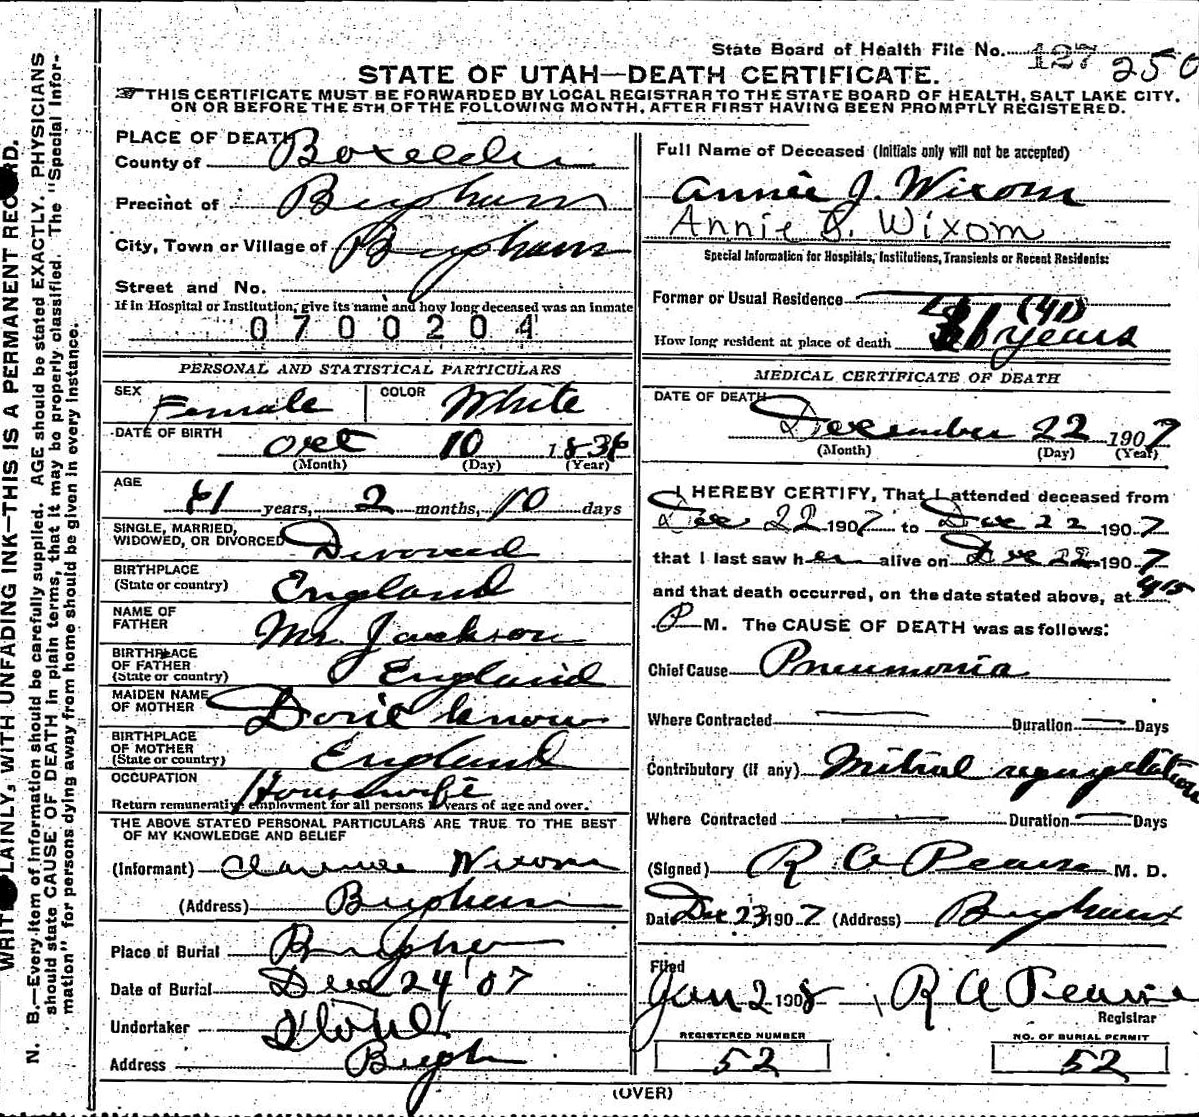 State Board of Health File No. 127 250
STATE OF UTAH—DEATH CERTIFICATE.
THIS CERTIFICATE MUST BE FORWARDED BY LOCAL REGISTRAR TO THE STATE BOARD OF HEALTH, SALT LAKE CITY,
ON OR BEFORE THE 5TH OF THE FOLLOWING MONTH, AFTER FIRST HAVING BEEN PROMPTLY REGISTERED.
PLACE OF DEATH
County of Boxelder
Precinct of Brigham
City, Town or Village of Brigham
Street and No.
If in Hospital or Institution, give its name and how long deceased was an inmate
0700204
PERSONAL AND STATISTICAL PARTICULARS
SEX Female COLOR White
DATE OF BIRTH Oct 10 1836
(Month) (Day) (Year)
AGE years, 2 months, 10 days
SINGLE, MARRIED,
WIDOWED, OR DIVORCED Divorced
BIRTHPLACE
(State or country) England
NAME OF
FATHER Mr. Jackson
BIRTHPLACE
OF FATHER
(State or country) England
MAIDEN NAME
OF MOTHER Don't know
BIRTHPLACE
OF MOTHER
(State or country) England
OCCUPATION Housewife
Return remunerative employment for all persons years of age and over.
THE ABOVE STATED PERSONAL PARTICULARS ARE TRUE TO THE BEST
OF MY KNOWLEDGE AND BELIEF
(Informant) Clarence Wixom
(Address) Brigham
Place of Burial Brigham
Date of Burial Dec 24 '07
Undertaker
Address Brigh
Full Name of Deceased (Initials only will not be accepted)
Annie J. Wixom
Annie J. Wixom
Special Information for Hospitals, Institutions, Transients or Recent Residents:
Former or Usual Residence
(41)
How long resident at place of death years
MEDICAL CERTIFICATE OF DEATH
DATE OF DEATH
December 22 1907
(Month) (Day) (Year)
I HEREBY CERTIFY, That I attended deceased from
Dec 22 1907 to Dec 22 1907
that I last saw her alive on Dec 22 1907
and that death occurred, on the date stated above, at 445
P M. The CAUSE OF DEATH was as follows:
Chief Cause Pneumonia
Where Contracted Duration Days
Contributory (if any) Mitral regurgitation
Where Contracted Duration Days
(Signed) R A Pearse M. D.
Date Dec 23 1907 (Address) Brigham
Filed
Jan 2 1908 R A Pearse
Registrar
REGISTERED NUMBER
52
NO. OF BURIAL PERMIT
52
(OVER)
WRITE PLAINLY, WITH UNFADING INK—THIS IS A PERMANENT RECORD.
N. B.—Every item of information should be carefully supplied. AGE should be stated EXACTLY. PHYSICIANS
should state CAUSE OF DEATH in plain terms, that it may be properly classified. The "Special Infor-
mation" for persons dying away from home should be given in every instance.